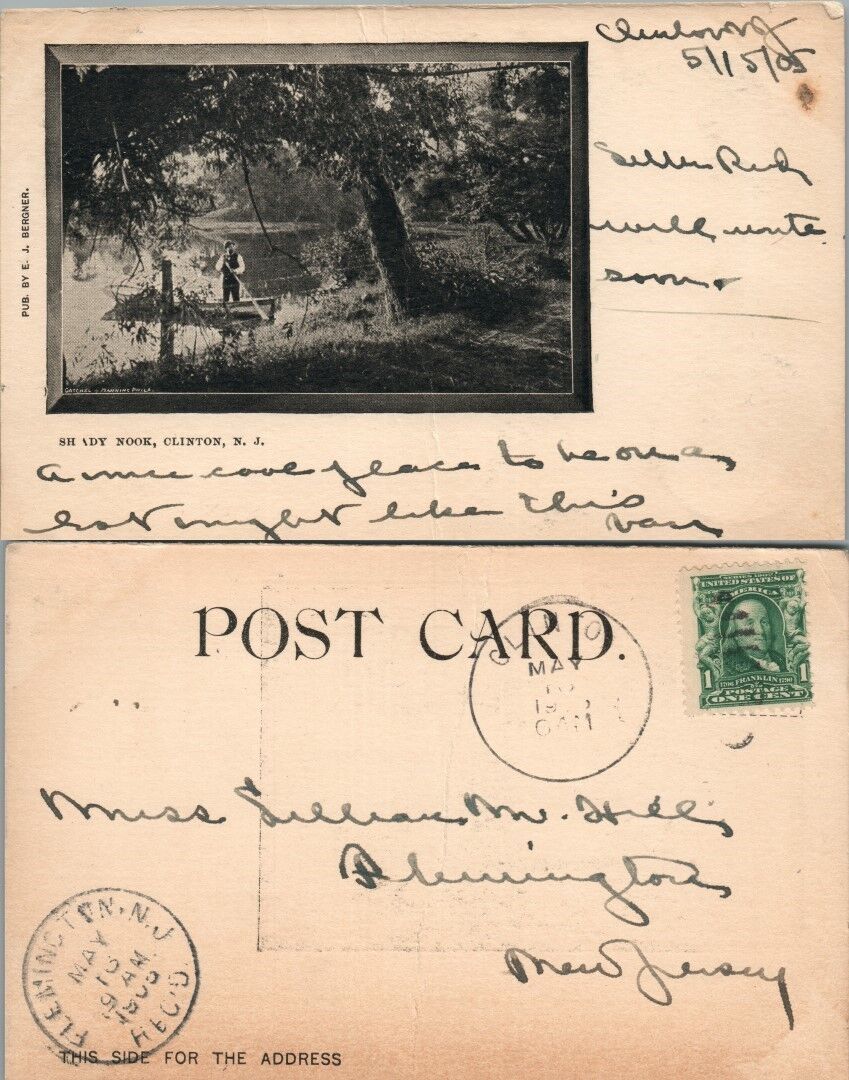 Clinton NJ
5/15/05
PUB. BY E. J. BERGNER.
will write
soon.
GATCHEL & MANNING PHILA.
SHADY NOOK, CLINTON, N. J.
a nice cool place to be on a
hot night like this
POST CARD.
CLINTO
MAY
19
6 AM
SERIES 1902
UNITED STATES OF
AMERICA
1 1706 FRANKLIN 1790 1
POSTAGE
ONE CENT
Miss Lillian M. Hill
Flemington
New Jersey
FLEMINGTON, N.J.
MAY
AM
REC'D
THIS SIDE FOR THE ADDRESS